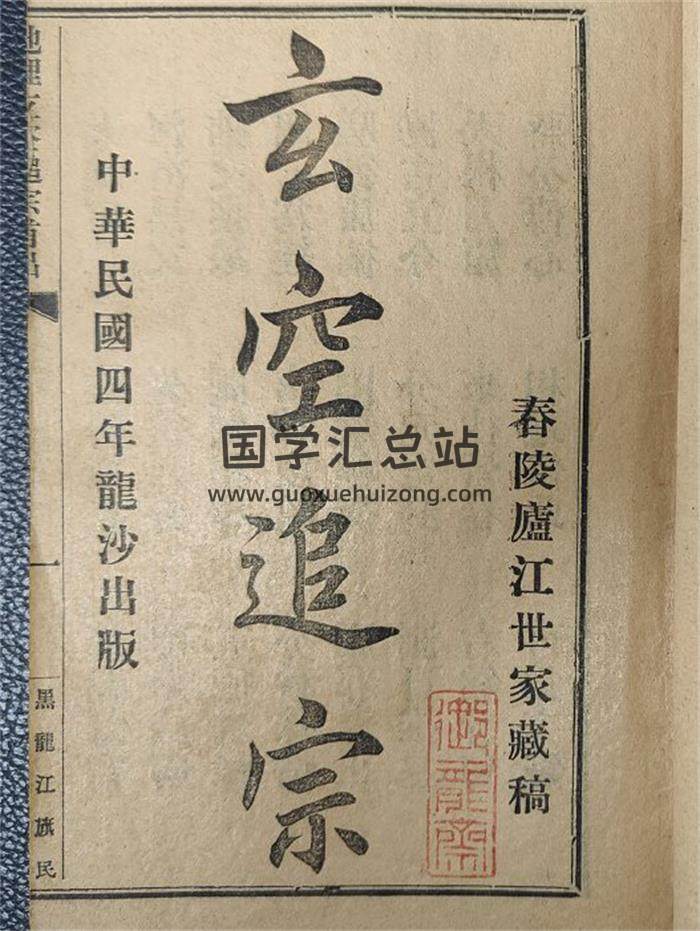 舂陵廬江世家藏稿
御龍齋
玄空追宗
中華民國四年龍沙出版
一
黑龍江旗民
国学汇总站
www.guoxuehuizong.com